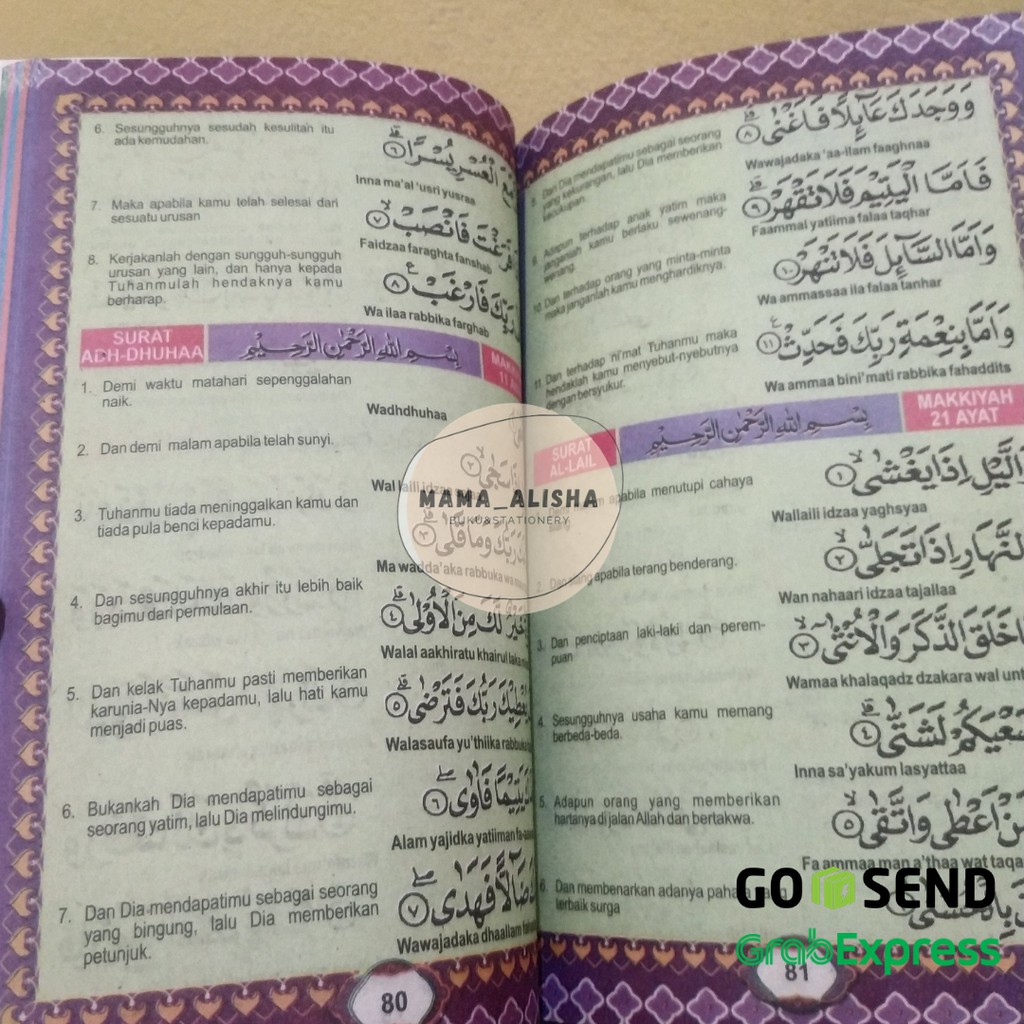 6. Sesungguhnya sesudah kesulitan itu
ada kemudahan.
مَعَ الْعُسْرِ يُسْرًا ٦
Inna ma'al 'usri yusraa
7. Maka apabila kamu telah selesai dari
sesuatu urusan
فَرَغْتَ فَانْصَبْ ٧
Faidzaa faraghta fanshab
8. Kerjakanlah dengan sungguh-sungguh
urusan yang lain, dan hanya kepada
Tuhanmulah hendaknya kamu
berharap.
رَبِّكَ فَارْغَبْ ٨
Wa ilaa rabbika farghab
SURAT
ADH-DHUHAA
بِسْمِ اللهِ الرَّحْمٰنِ الرَّحِيْمِ
1. Demi waktu matahari sepenggalahan
naik.
Wadhdhuhaa
2. Dan demi malam apabila telah sunyi.
Wal laili idzaa
3. Tuhanmu tiada meninggalkan kamu dan
tiada pula benci kepadamu.
رَبُّكَ وَمَا قَلٰى ٣
Ma wadda'aka rabbuka wa
4. Dan sesungguhnya akhir itu lebih baik
bagimu dari permulaan.
خَيْرٌ لَّكَ مِنَ الْاُوْلٰى ٤
Walal aakhiratu khairul laka
5. Dan kelak Tuhanmu pasti memberikan
karunia-Nya kepadamu, lalu hati kamu
menjadi puas.
يُعْطِيْكَ رَبُّكَ فَتَرْضٰى ٥
Walasaufa yu'thiika rabbuka
6. Bukankah Dia mendapatimu sebagai
seorang yatim, lalu Dia melindungimu.
يَتِيْمًا فَاٰوٰى ٦
Alam yajidka yatiiman
7. Dan Dia mendapatimu sebagai seorang
yang bingung, lalu Dia memberikan
petunjuk.
ضَآلًّا فَهَدٰى ٧
Wawajadaka dhaallam
80
وَوَجَدَكَ عَآىِٕلًا فَاَغْنٰى ٨
8. Dan Dia mendapatimu sebagai seorang
yang kekurangan, lalu Dia memberikan
kecukupan.
Wawajadaka 'aa-ilam faaghnaa
فَاَمَّا الْيَتِيْمَ فَلَا تَقْهَرْ ٩
9. Adapun terhadap anak yatim maka
janganlah kamu berlaku sewenang-
wenang.
Faammal yatiima falaa taqhar
وَاَمَّا السَّآىِٕلَ فَلَا تَنْهَرْ ١٠
10. Dan terhadap orang yang minta-minta
maka janganlah kamu menghardiknya.
Wa ammassaa ila falaa tanhar
وَاَمَّا بِنِعْمَةِ رَبِّكَ فَحَدِّثْ ١١
11. Dan terhadap ni'mat Tuhanmu maka
hendaklah kamu menyebut-nyebutnya
dengan bersyukur.
Wa ammaa bini'mati rabbika fahaddits
SURAT
AL-LAIL
بِسْمِ اللهِ الرَّحْمٰنِ الرَّحِيْمِ
MAKKIYAH
21 AYAT
الَّيْلِ اِذَا يَغْشٰى ١
apabila menutupi cahaya
Wallaili idzaa yaghsyaa
النَّهَارِ اِذَا تَجَلّٰى ٢
apabila terang benderang.
Wan nahaari idzaa tajallaa
خَلَقَ الذَّكَرَ وَالْاُنْثٰى ٣
3. Dan penciptaan laki-laki dan perem-
puan
Wamaa khalaqadz dzakara wal
سَعْيَكُمْ لَشَتّٰى ٤
4. Sesungguhnya usaha kamu memang
berbeda-beda.
Inna sa'yakum lasyattaa
مَنْ اَعْطٰى وَاتَّقٰى ٥
5. Adapun orang yang memberikan
hartanya di jalan Allah dan bertakwa.
Fa ammaa man a'thaa wat taqa
6. Dan membenarkan adanya
terbaik surga
81
MAMA_ALISHA
BUKU&STATIONERY
GO SEND
GrabExpress